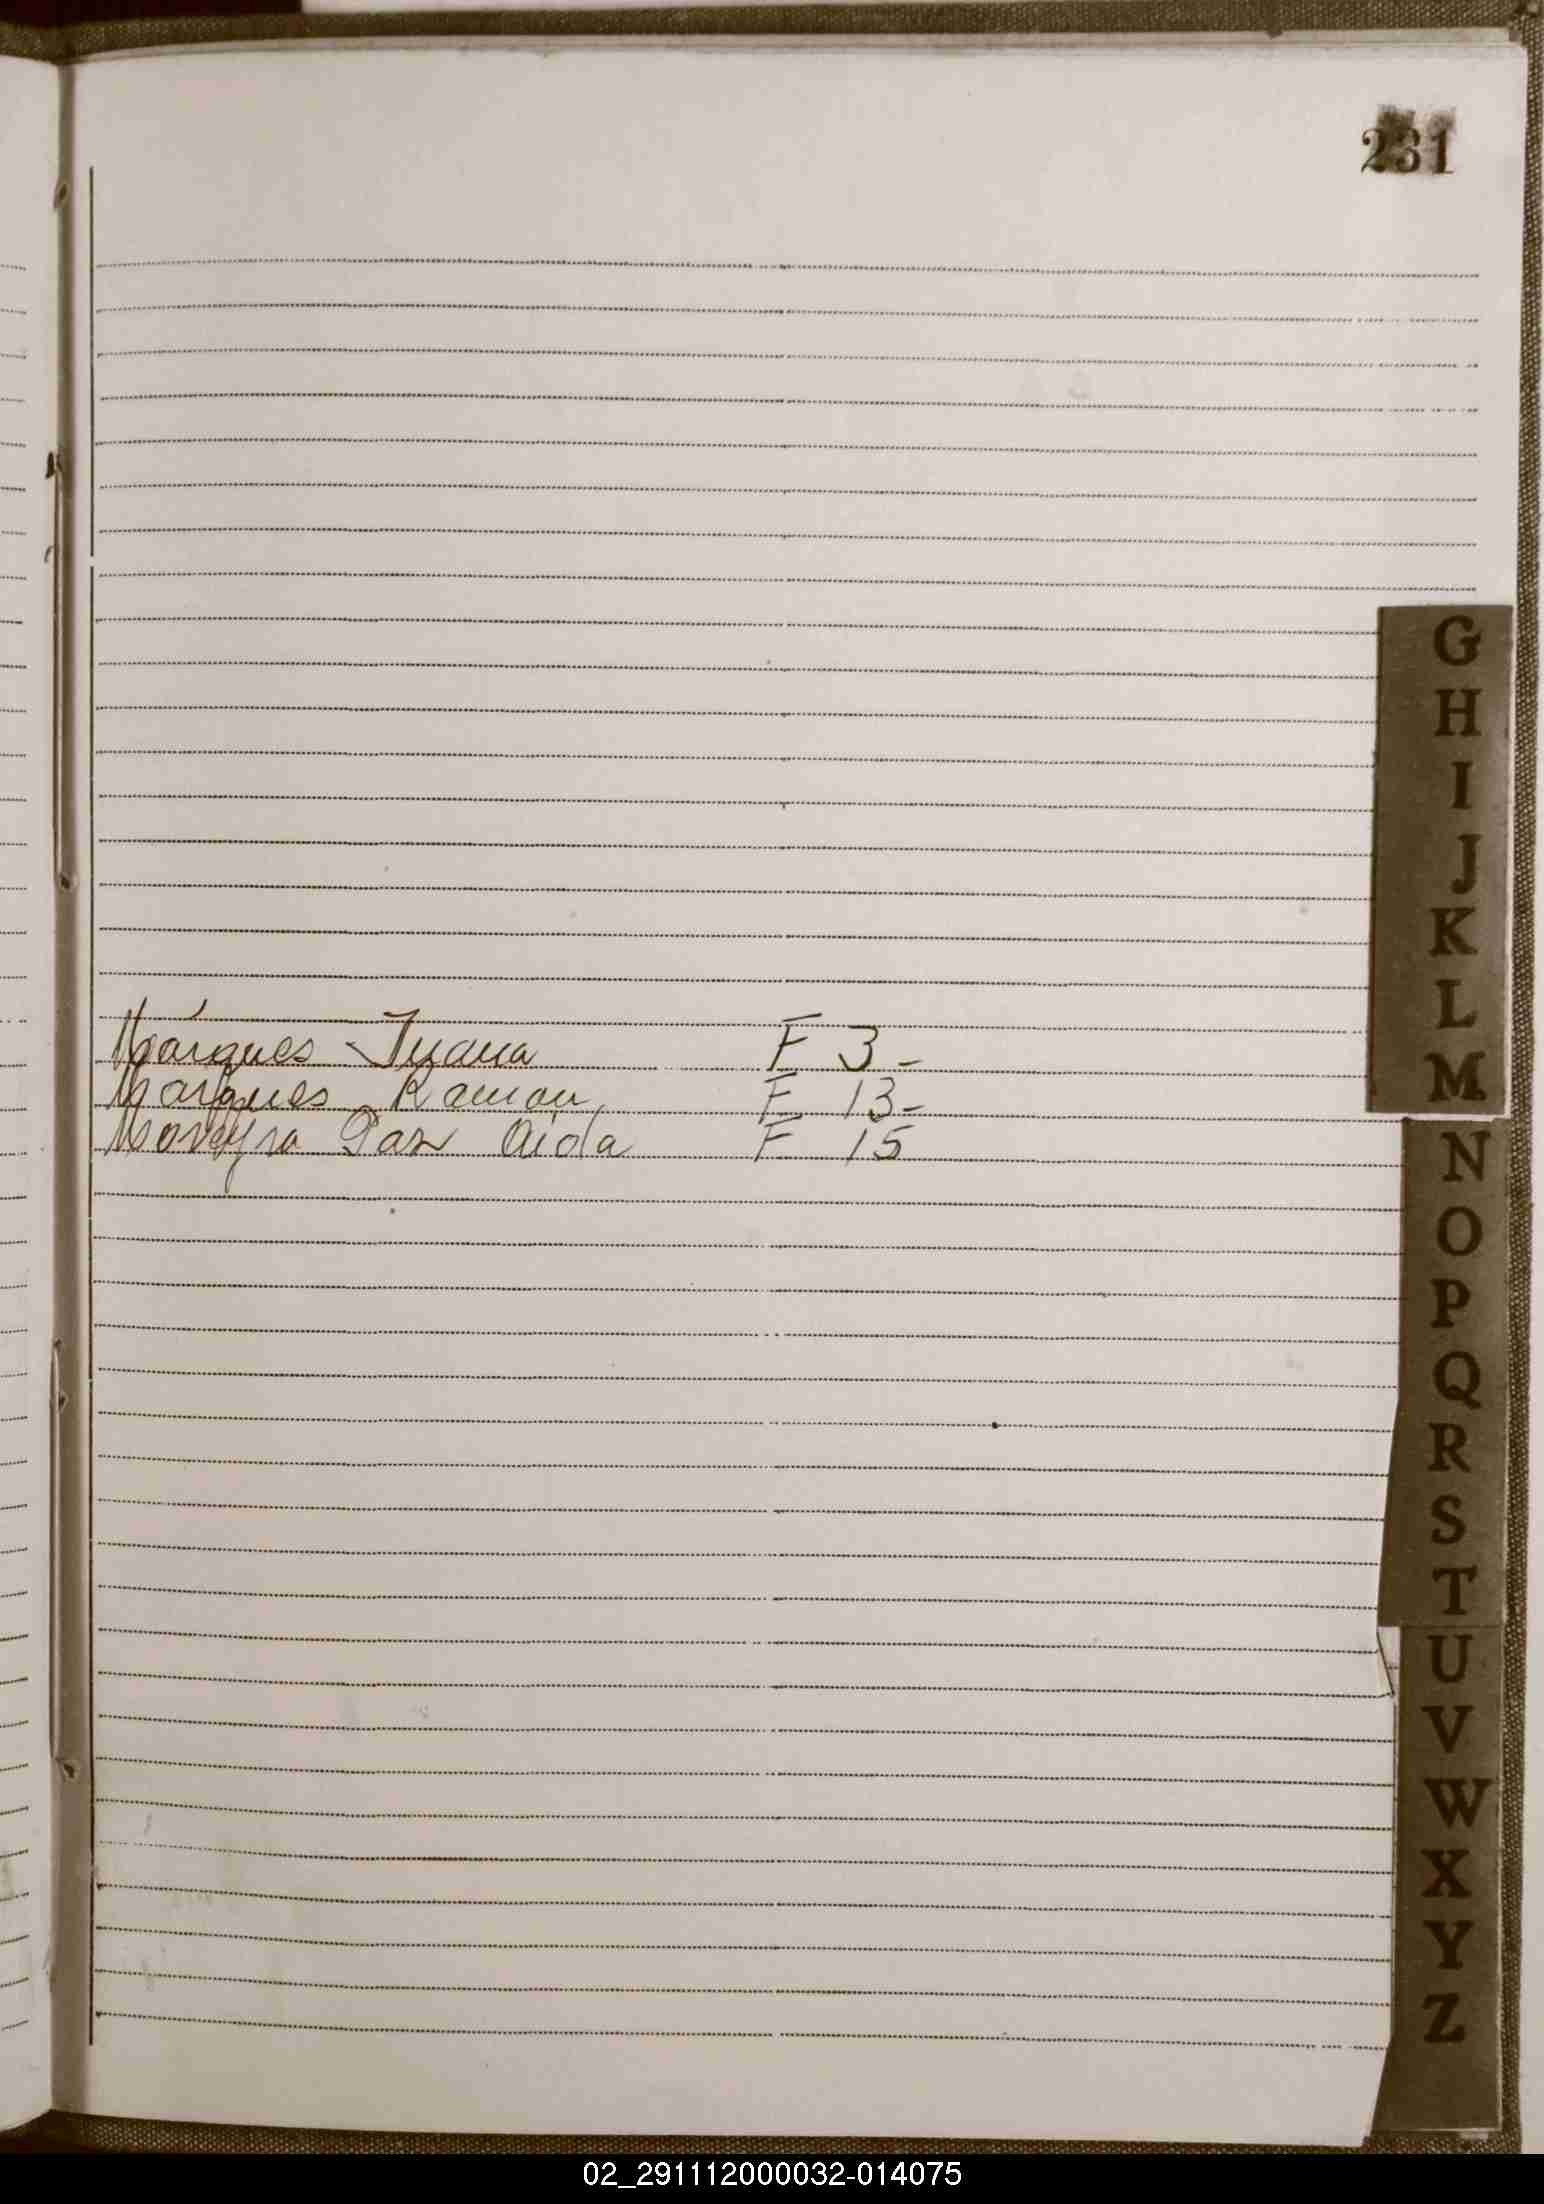 231
G
H
I
J
K
L
Márques Juana F 3-
Marques Ramon F 13-
M
Moreyra Paz Aida F 15
N
O
P
Q
R
S
T
U
V
W
X
Y
Z
02_291112000032-014075